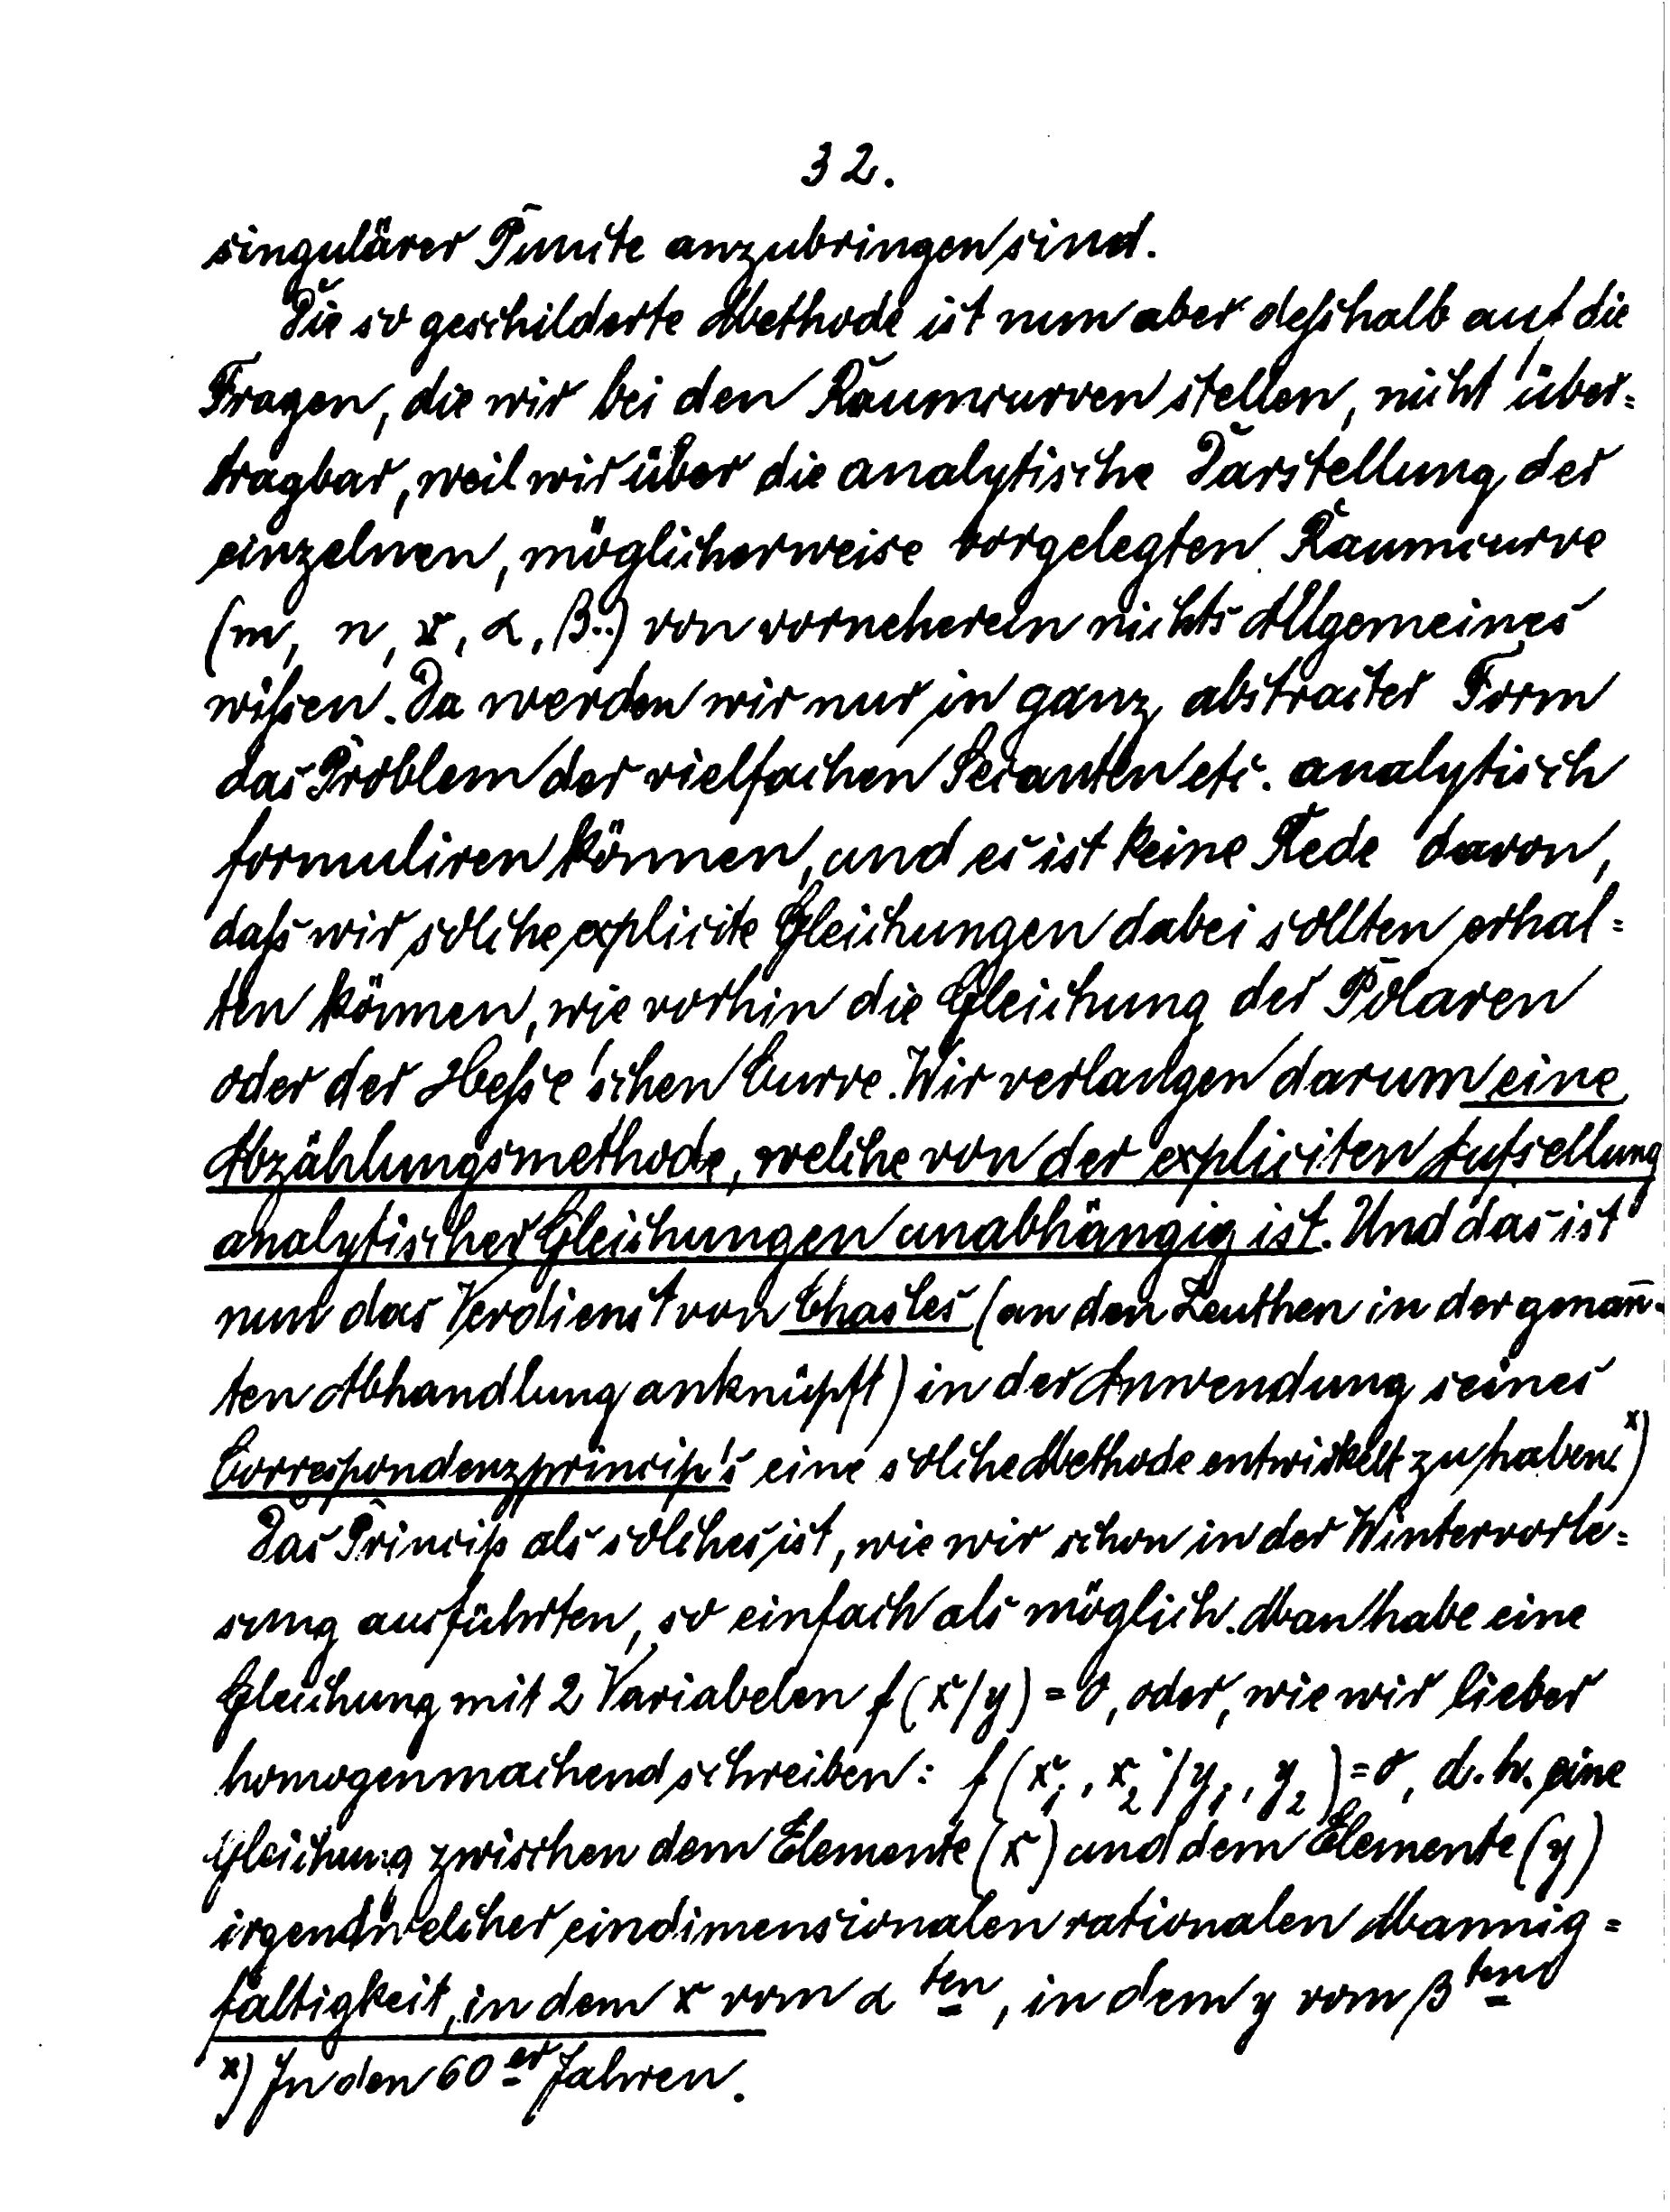 32.
singulärer Puncte anzubringen sind.
Die so geschilderte Methode ist nun aber deßhalb auf die
Fragen, die wir bei den Raumcurven stellen, nicht über=
tragbar, weil wir über die analytische Darstellung der
einzelnen, möglicherweise vorgelegten Raumcurve
(m, n, r, α, β..) von vorneherein nichts Allgemeines
wißen. Da werden wir nur in ganz abstracter Form
das Problem der vielfachen Secanten etc. analytisch
formuliren können, und es ist keine Rede davon,
daß wir solche explicite Gleichungen dabei sollten erhal=
ten können, wie vorhin die Gleichung der Polaren
oder der Heße'schen Curve. Wir verlangen darum eine
Abzählungsmethode, welche von der expliciten Aufsellung
analytischer Gleichungen unabhängig ist. Und das ist
nun das Verdienst von Chasles (an den Zeuthen in der genan̄-
ten Abhandlung anknüpft) in der Anwendung seines
Correspondenzprincip's eine solche Methode entwickelt zu haben. x)
Das Princip als solches ist, wie wir schon in der Wintervorle=
sung ausführten, so einfach als möglich. Man habe eine
Gleichung mit 2 Variabelen f(x/y) = 0, oder, wie wir lieber
homogenmachend schreiben: f(x₁, x₂ / y₁, y₂) = 0, d. h. eine
Gleichung zwischen dem Elemente (x) und dem Elemente (y)
irgendwelcher eindimensionalen rationalen Mannig=
faltigkeit, in dem x vom α ten, in dem y vom β ten
x) In den 60er Jahren.